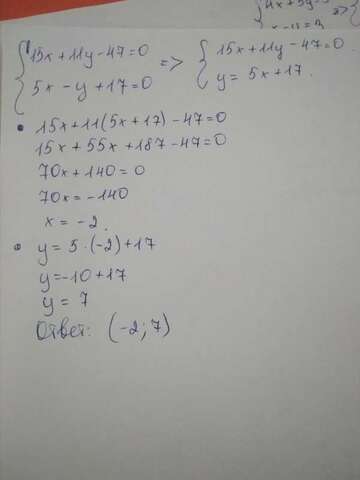 {15x+11y-47=0 => {15x+11y-47=0
{5x-y+17=0 {y=5x+17.
• 15x+11(5x+17)-47=0
15x+55x+187-47=0
70x+140=0
70x=-140
x=-2.
• y=5·(-2)+17
y=-10+17
y=7
Ответ: (-2;7)